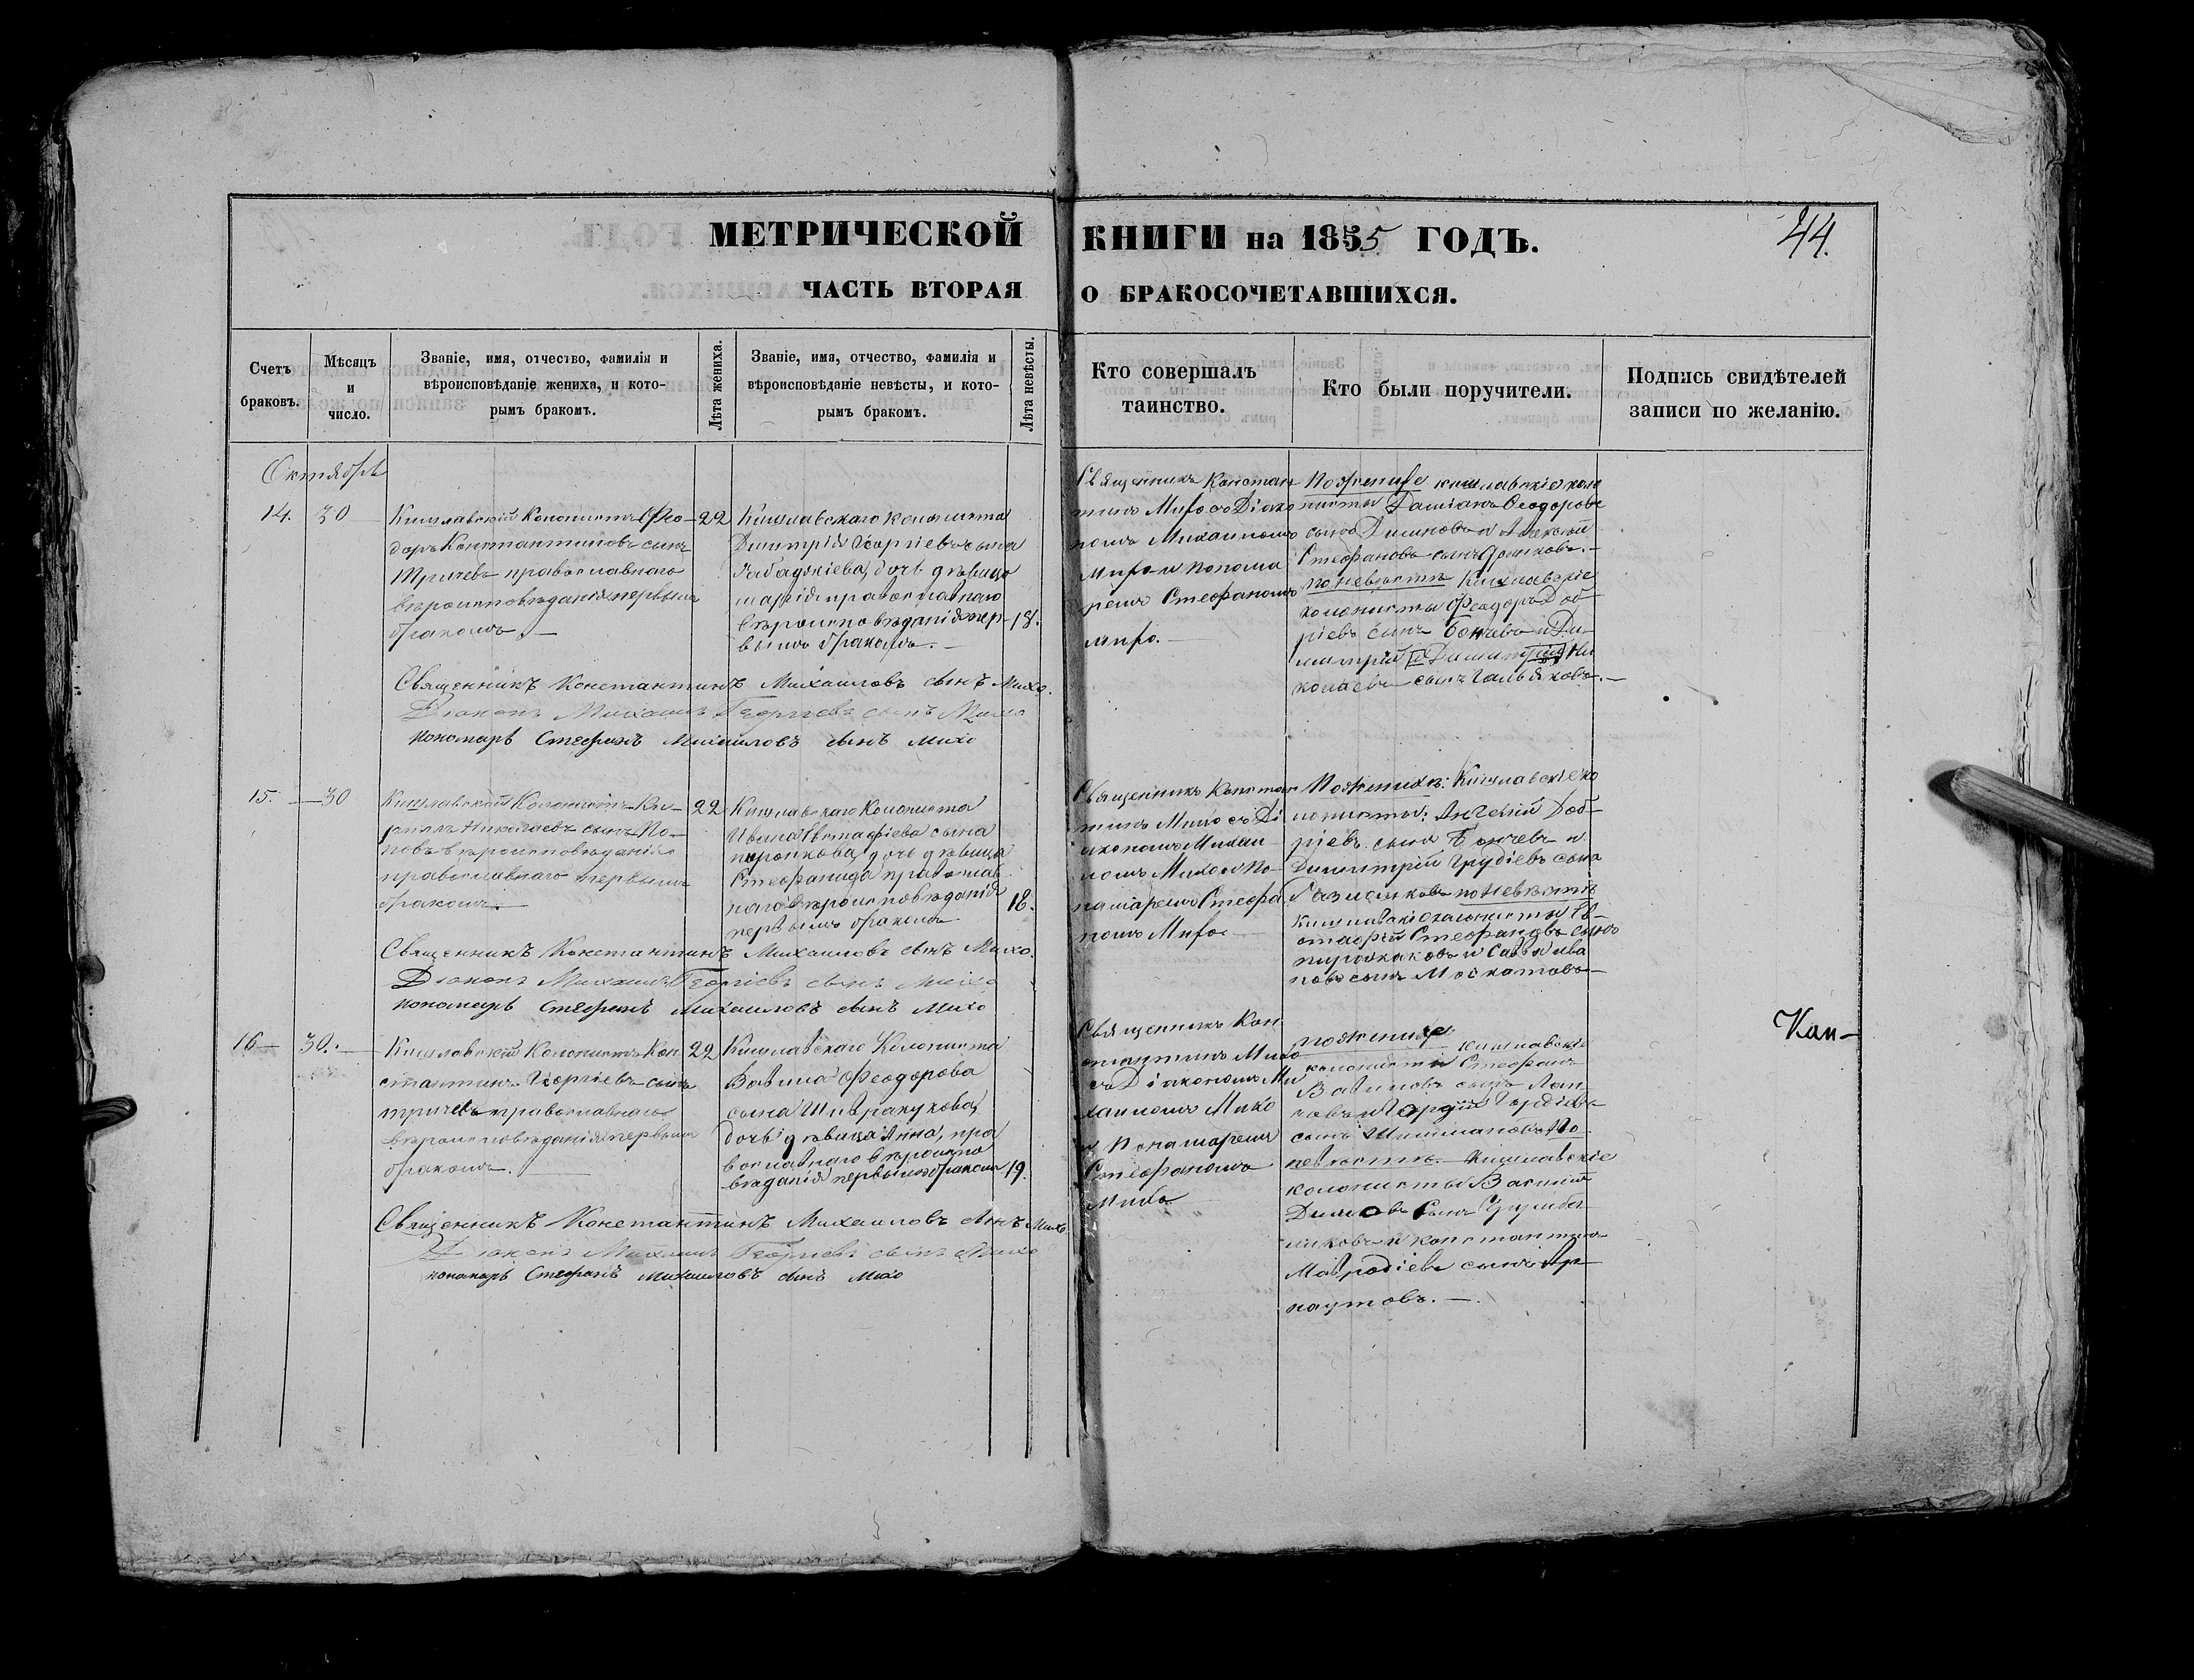 МЕТРИЧЕСКОЙ КНИГИ на 1855 ГОДЪ.
44.
ЧАСТЬ ВТОРАЯ О БРАКОСОЧЕТАВШИХСЯ.
Счетъ браковъ.
Мѣсяцъ и число.
Званіе, имя, отчество, фамилія и
вѣроисповѣданіе жениха, и кото-
рымъ бракомъ.
Лѣта жениха.
Званіе, имя, отчество, фамилія и
вѣроисповѣданіе невѣсты, и кото-
рымъ бракомъ.
Лѣта невѣсты.
Кто совершалъ
таинство.
Кто были поручители.
Подпись свидѣтелей
записи по желанію.
Октябрь
14. 30
Кишлавскій Колонистъ Фео-
доръ Константиновъ сынъ
Тричевъ православнаго
вѣроисповѣданія первымъ
бракомъ.
22
Кишлавскаго колониста
Димитрія Георгіевъ сына
дочь дѣвица
марія православнаго
вѣроисповѣданія пер-
вымъ бракомъ.
18.
Священникъ Констан
тинъ Михо съ Діако
номъ Михаиломъ
Михо и понома
ремъ Стефаномъ
Михо.
По женихе кишлавскіе коло
нисты Даміанъ Феодоровъ
сынъ и Алексѣй
Стефановъ сынъ
по невѣстѣ Кишлавскіе
колонисты Феодоръ Доб-
ріевъ сынъ Бончевъ и Ди-
митрій и Димитрій Ни
колаевъ сынъ
Священникъ Константинъ Михаиловъ сынъ Михо.
Діаконъ Михаилъ Георгіевъ сынъ Михо
пономарь Стефанъ Михаиловъ сынъ Михо
15. 30
Кишлавскій Колонистъ Ки-
риллъ Николаевъ сынъ По-
повъ вѣроисповѣданія
православнаго первымъ
бракомъ.
22
Кишлавскаго Колониста
Ивана Евстафіева сына
дочь дѣвица
Стефанида православ
наго вѣроисповѣданія
первымъ бракомъ
18.
Священникъ Констан
тинъ Михо съ Ді
акономъ Михаи
ломъ Михо и По
намаремъ Стефа
номъ Михо
По женихѣ: Кишлавскіе ко
лонисты: Доб-
ріевъ сынъ Бончевъ и
Димитрій сынъ
по невѣстѣ
Кишлавскіе колонисты Ев-
стафій Стефановъ сынъ
и Савва Ива
новъ сынъ
Священникъ Константинъ Михаиловъ сынъ Михо.
Діаконъ Михаилъ Георгіевъ сынъ Михо
пономарь Стефанъ Михаиловъ сынъ Михо
16 30.
Кишлавскій Колонистъ Кон
стантинъ Георгіевъ сынъ
тричевъ православнаго
вѣроисповѣданія первымъ
бракомъ.
22
Кишлавскаго Колониста
Феодорова
сына
дочь дѣвица Анна, пра
вославнаго вѣроиспо
вѣданія первымъ бракомъ
19.
Священникъ Кон
стантинъ Михо
съ Діакономъ Ми
хаиломъ Михо
и Понамаремъ
Стефаномъ
Михо
по женихе кишлавскіе
колонисты Стефанъ
сынъ
сынъ по
невѣстѣ. Кишлавскіе
колонисты
сынъ
и Константинъ
Мавродіевъ сынъ Ар
наутовъ.
Священникъ Константинъ Михаиловъ сынъ Михо
Діаконъ Михаилъ Георгіевъ сынъ Михо
пономарь Стефанъ Михаиловъ сынъ Михо
Кон-